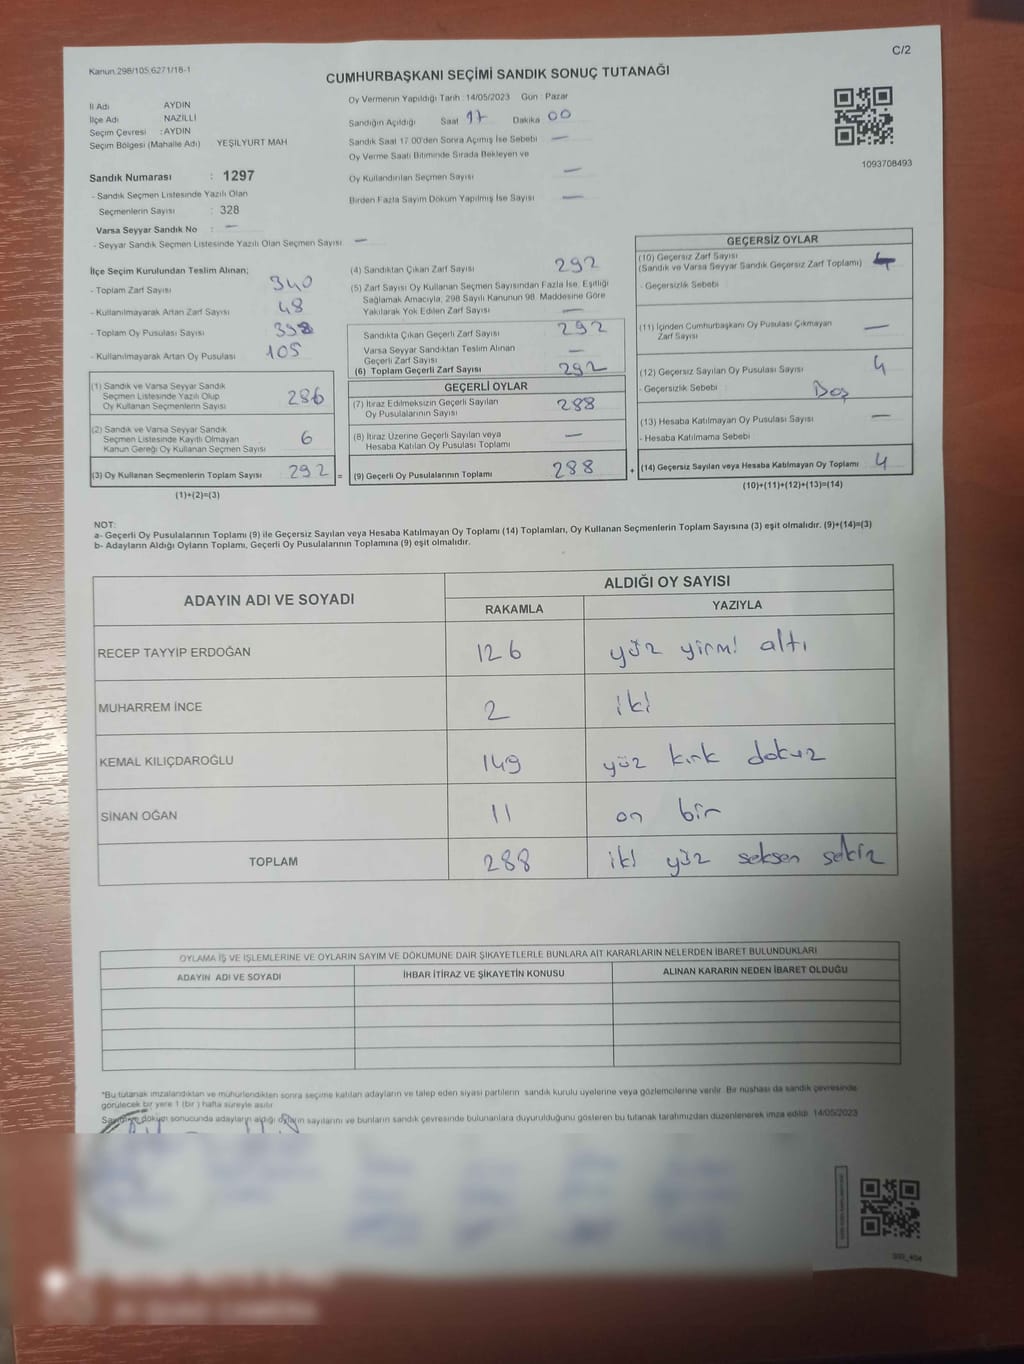 C/2
Kanun.298/105,6271/18-1
CUMHURBAŞKANI SEÇİMİ SANDIK SONUÇ TUTANAĞI
İl Adı AYDIN
İlçe Adı NAZİLLİ
Seçim Çevresi : AYDIN
Seçim Bölgesi (Mahalle Adı) YEŞİLYURT MAH
Oy Vermenin Yapıldığı Tarih :14/05/2023 Gün : Pazar
Sandığın Açıldığı Saat 17 Dakika 00
Sandık Saat 17.00'den Sonra Açımış İse Sebebi —
Oy Verme Saati Bitiminde Sırada Bekleyen ve
Oy Kullandırılan Seçmen Sayısı —
Birden Fazla Sayım Döküm Yapılmış İse Sayısı —
1093708493
Sandık Numarası : 1297
- Sandık Seçmen Listesinde Yazılı Olan
Seçmenlerin Sayısı : 328
Varsa Seyyar Sandık No : —
- Seyyar Sandık Seçmen Listesinde Yazılı Olan Seçmen Sayısı —
İlçe Seçim Kurulundan Teslim Alınan;
- Toplam Zarf Sayısı 340
- Kullanılmayarak Artan Zarf Sayısı 48
- Toplam Oy Pusulası Sayısı
- Kullanılmayarak Artan Oy Pusulası 105
(1) Sandık ve Varsa Seyyar Sandık
Seçmen Listesinde Yazılı Olup
Oy Kullanan Seçmenlerin Sayısı 286
(2) Sandık ve Varsa Seyyar Sandık
Seçmen Listesinde Kayıtlı Olmayan
Kanun Gereği Oy Kullanan Seçmen Sayısı 6
(3) Oy Kullanan Seçmenlerin Toplam Sayısı 292 =
(1)+(2)=(3)
(4) Sandıktan Çıkan Zarf Sayısı 292
(5) Zarf Sayısı Oy Kullanan Seçmen Sayısından Fazla İse, Eşitliği
Sağlamak Amacıyla, 298 Sayılı Kanunun 98. Maddesine Göre
Yakılarak Yok Edilen Zarf Sayısı —
Sandıkta Çıkan Geçerli Zarf Sayısı 292
Varsa Seyyar Sandıktan Teslim Alınan
Geçerli Zarf Sayısı —
(6) Toplam Geçerli Zarf Sayısı 292
GEÇERLİ OYLAR
(7) İtiraz Edilmeksizin Geçerli Sayılan
Oy Pusulalarının Sayısı 288
(8) İtiraz Üzerine Geçerli Sayılan veya
Hesaba Katılan Oy Pusulası Toplamı —
(9) Geçerli Oy Pusulalarının Toplamı 288 +
GEÇERSİZ OYLAR
(10) Geçersiz Zarf Sayısı
(Sandık ve Varsa Seyyar Sandık Geçersiz Zarf Toplamı)
- Geçersizlik Sebebi
(11) İçinden Cumhurbaşkanı Oy Pusulası Çıkmayan
Zarf Sayısı —
(12) Geçersiz Sayılan Oy Pusulası Sayısı 4
- Geçersizlik Sebebi : Boş
(13) Hesaba Katılmayan Oy Pusulası Sayısı —
- Hesaba Katılmama Sebebi
(14) Geçersiz Sayılan veya Hesaba Katılmayan Oy Toplamı 4
(10)+(11)+(12)+(13)=(14)
NOT:
a- Geçerli Oy Pusulalarının Toplamı (9) ile Geçersiz Sayılan veya Hesaba Katılmayan Oy Toplamı (14) Toplamları, Oy Kullanan Seçmenlerin Toplam Sayısına (3) eşit olmalıdır. (9)+(14)=(3)
b- Adayların Aldığı Oyların Toplamı, Geçerli Oy Pusulalarının Toplamına (9) eşit olmalıdır.
ADAYIN ADI VE SOYADI ALDIĞI OY SAYISI
RAKAMLA YAZIYLA
RECEP TAYYİP ERDOĞAN 126 yüz yirmi altı
MUHARREM İNCE 2 iki
KEMAL KILIÇDAROĞLU 149 yüz kırk dokuz
SİNAN OĞAN 11 on bir
TOPLAM 288 iki yüz seksen sekiz
OYLAMA İŞ VE İŞLEMLERİNE VE OYLARIN SAYIM VE DÖKÜMÜNE DAİR ŞİKAYETLERLE BUNLARA AİT KARARLARIN NELERDEN İBARET BULUNDUKLARI
ADAYIN ADI VE SOYADI İHBAR İTİRAZ VE ŞİKAYETİN KONUSU ALINAN KARARIN NEDEN İBARET OLDUĞU
*Bu tutanak imzalandıktan ve mühürlendikten sonra seçime katılan adayların ve talep eden siyasi partilerin sandık kurulu üyelerine veya gözlemcilerine verilir. Bir nüshası da sandık çevresinde
görülecek bir yere 1 (bir) hafta süreyle asılır.
döküm sonucunda adayların aldığı oyların sayılarını ve bunların sandık çevresinde bulunanlara duyurulduğunu gösteren bu tutanak tarafımızdan düzenlenerek imza edildi. 14/05/2023